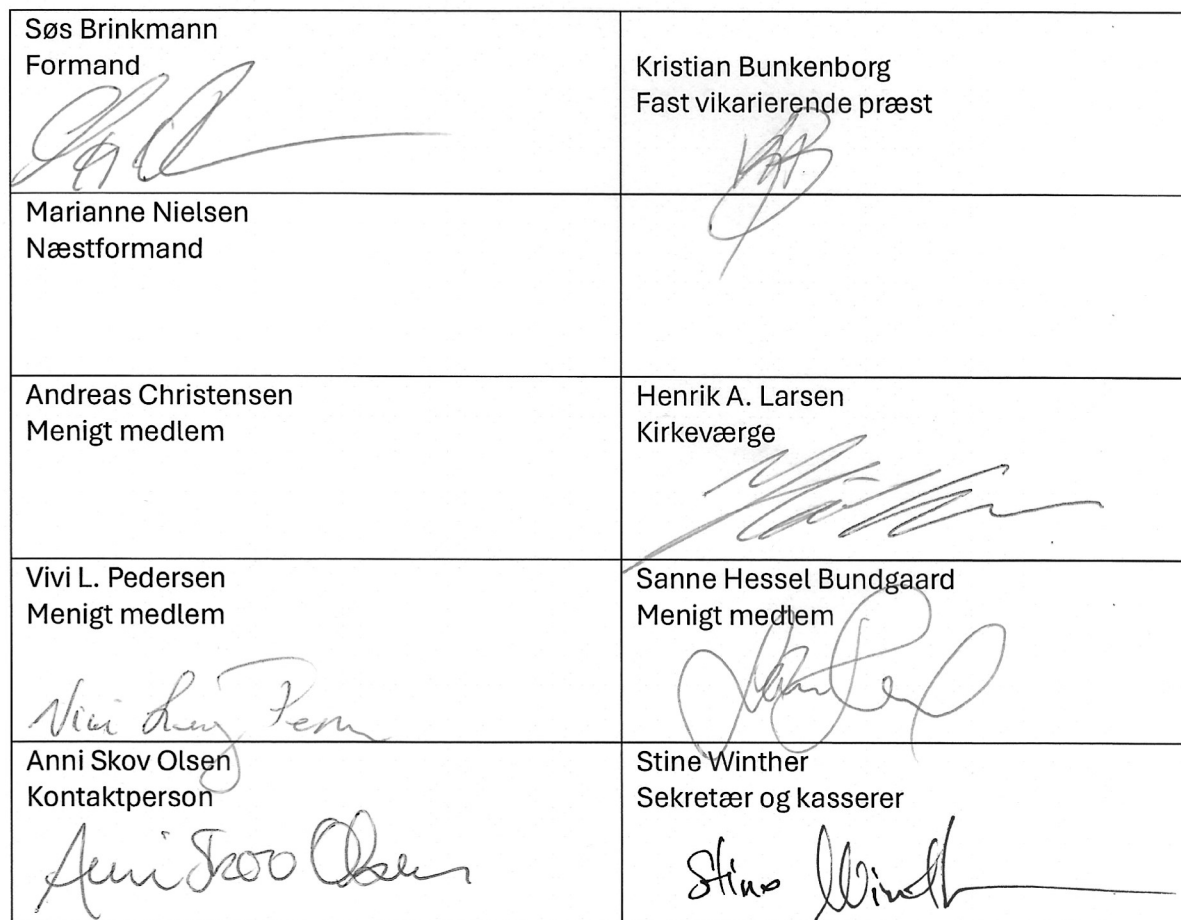 Søs Brinkmann
Formand
Kristian Bunkenborg
Fast vikarierende præst
Marianne Nielsen
Næstformand
Andreas Christensen
Menigt medlem
Henrik A. Larsen
Kirkeværge
Vivi L. Pedersen
Menigt medlem
Vivi
Sanne Hessel Bundgaard
Menigt medlem
Anni Skov Olsen
Kontaktperson
Anni Skov Olsen
Stine Winther
Sekretær og kasserer
Stine Winth